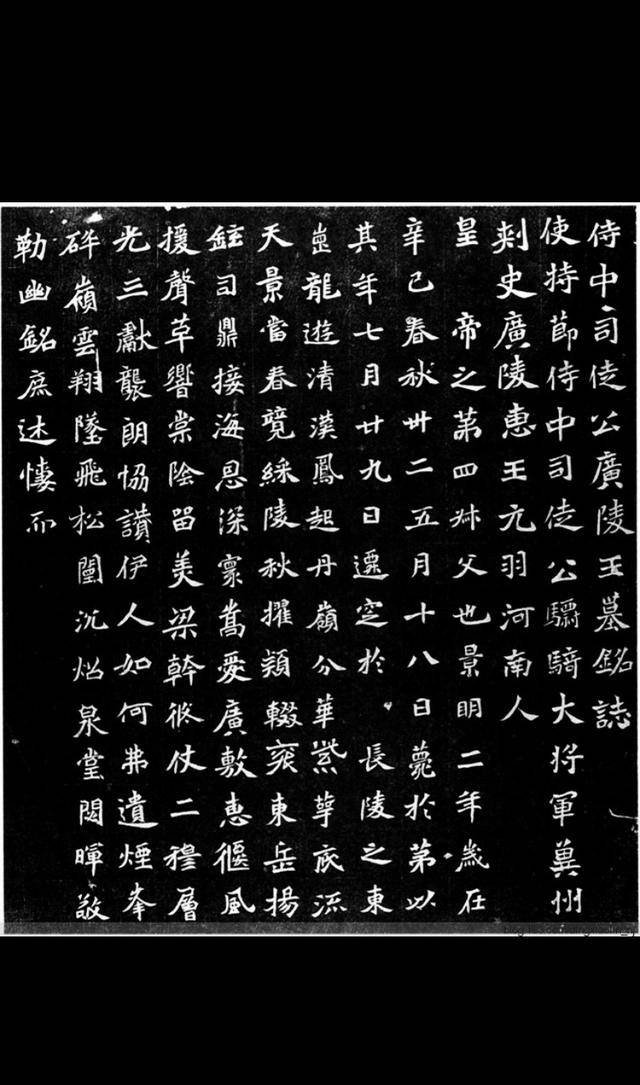 侍中司徒公廣陵王墓銘誌
使持節侍中司徒公驃騎大將軍冀州
刺史廣陵惠王元羽河南人
皇帝之第四叔父也景明二年歲在
辛巳春秋卅二五月十八日薨於第以
其年七月廿九日遷窆於長陵之東
崗龍遊清漢鳳起丹嶺分華紫萼底流
天景當春競綵陵秋擢穎輟袞東岳揚
鉉司鼎接海恩深寰嵩愛廣敷惠偃風
援聲革響棠陰留美梁幹修仗二穆層
光三獻襲朗協讚伊人如何弗遺煙峯
碎嶺雲翔墜飛松闈沉炤泉堂閟暉敬
勒幽銘庶述悽而